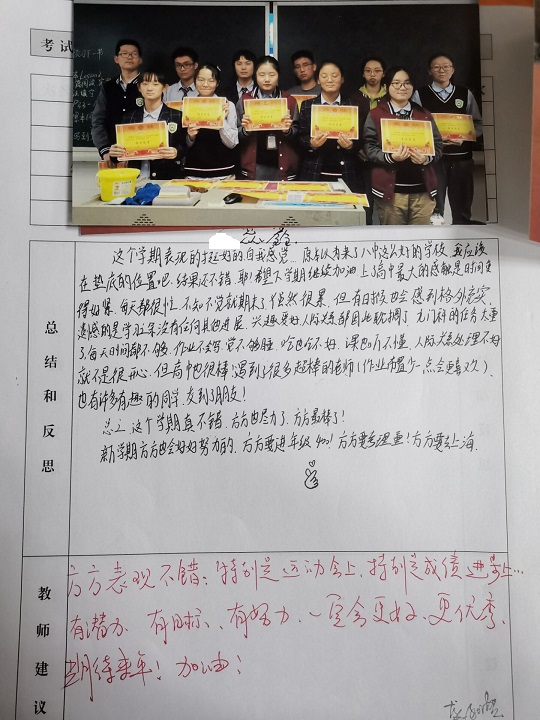 考试
总结和反思
这个学期表现的挺好的自我感觉。原以为来了八中这么好的学校我应该
在垫底的位置吧,结果还不错,耶!希望下学期继续加油 上了高中最大的感触是时间变
得好紧 每天都很忙 不知不觉就期末了 虽然很累,但有时候也会感到格外充实,
遗憾的是学业没有任何其他进展,兴趣爱好 人际关系都因此耽搁了 九门科的任务太重
了 每天时间都不够,作业不会写 觉不够睡,吃也吃不好,课也听不懂,人际关系处理不好
就不是很开心,但高中也很棒!遇到了很多超棒的老师(作业布置少一点会更喜欢),
也有许多有趣的同学,交到了朋友!
总之这个学期真不错,方方也尽力了,方方最棒了!
新学期方方也会好好努力的,方方要进年级400!方方要考理重!方方要去上海,
教师建议
方方表现不错:特别是运动会上,特别是成绩进步上…
有潜力、有目标、有努力、一定会更好、更优秀、
期待来年!加油!